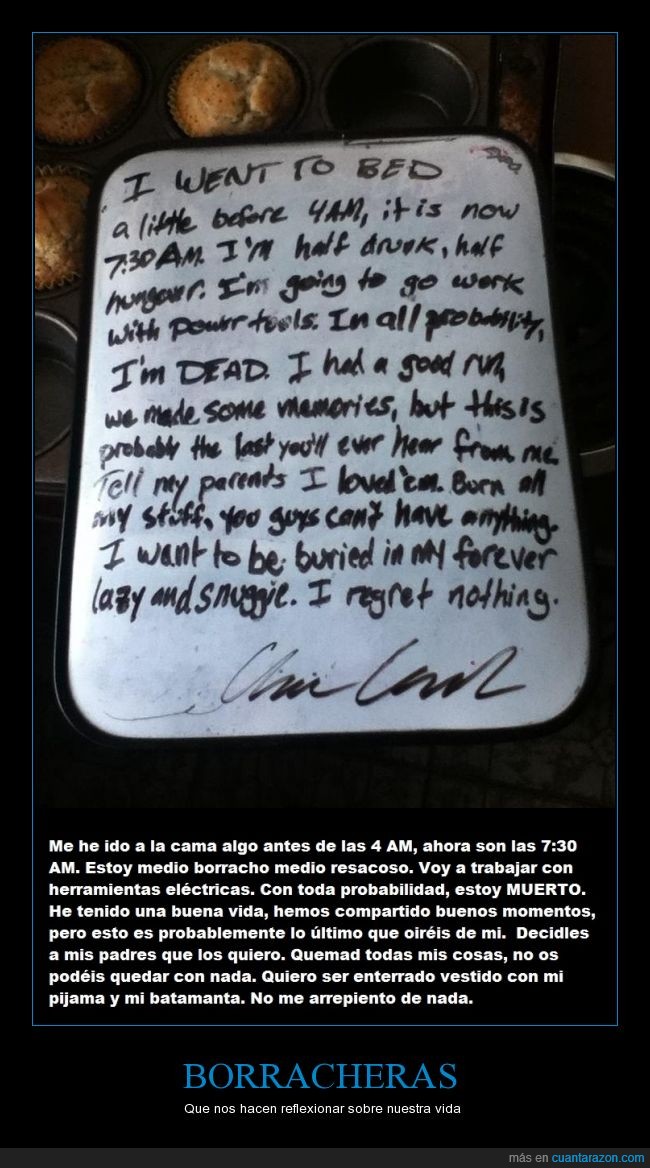 I WENT TO BED
a little before 4AM, it is now
7:30 AM. I'm half drunk, half
hungover. I'm going to go work
with power tools. In all probability,
I'm DEAD. I had a good run,
we made some memories, but this is
probably the last you'll ever hear from me.
Tell my parents I loved 'em. Burn all
my stuff, you guys can't have anything.
I want to be buried in my forever
lazy and snuggie. I regret nothing.
Me he ido a la cama algo antes de las 4 AM, ahora son las 7:30
AM. Estoy medio borracho medio resacoso. Voy a trabajar con
herramientas eléctricas. Con toda probabilidad, estoy MUERTO.
He tenido una buena vida, hemos compartido buenos momentos,
pero esto es probablemente lo último que oiréis de mi. Decidles
a mis padres que los quiero. Quemad todas mis cosas, no os
podéis quedar con nada. Quiero ser enterrado vestido con mi
pijama y mi batamanta. No me arrepiento de nada.
BORRACHERAS
Que nos hacen reflexionar sobre nuestra vida
más en cuantarazon.com